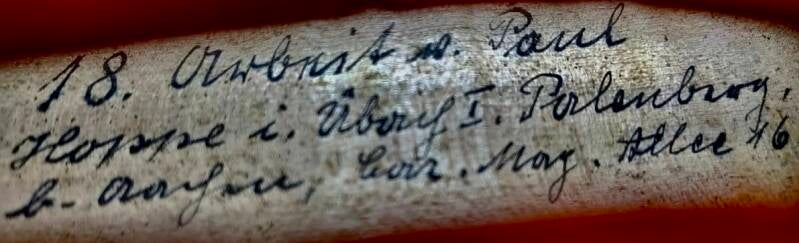 18. Arbeit v. Paul
Hoppe i. Übach I. Palenberg,
b. Aachen, Car. Mag. Allee 16